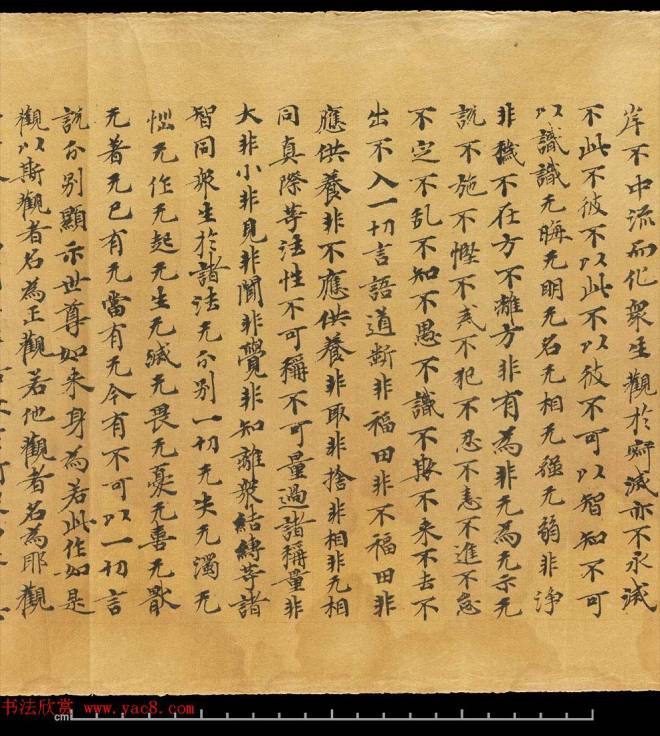 岸不中流而化衆生觀於寂滅亦不永滅
不此不彼不以此不以彼不可以智知不可
以識識无晦无明无名无相无強无弱非淨
非穢不在方不離方非有為非无為无示无
說不施不慳不戒不犯不忍不恚不進不怠
不定不乱不知不愚不識不欺不来不去不
出不入一切言語道斷非福田非不福田非
應供養非不應供養非取非捨非相非无相
同真際等法性不可稱不可量過諸稱量非
大非小非見非聞非覺非知離衆結縛等諸
智同衆生於諸法无分別一切无失无濁无
惱无作无起无生无滅无畏无憂无喜无厭
无著无已有无當有无今有不可以一切言
說分別顯示世尊如来身為若此作如是
觀以斯觀者名為正觀若他觀者名為耶觀
书法欣赏 www.yac8.com
cm